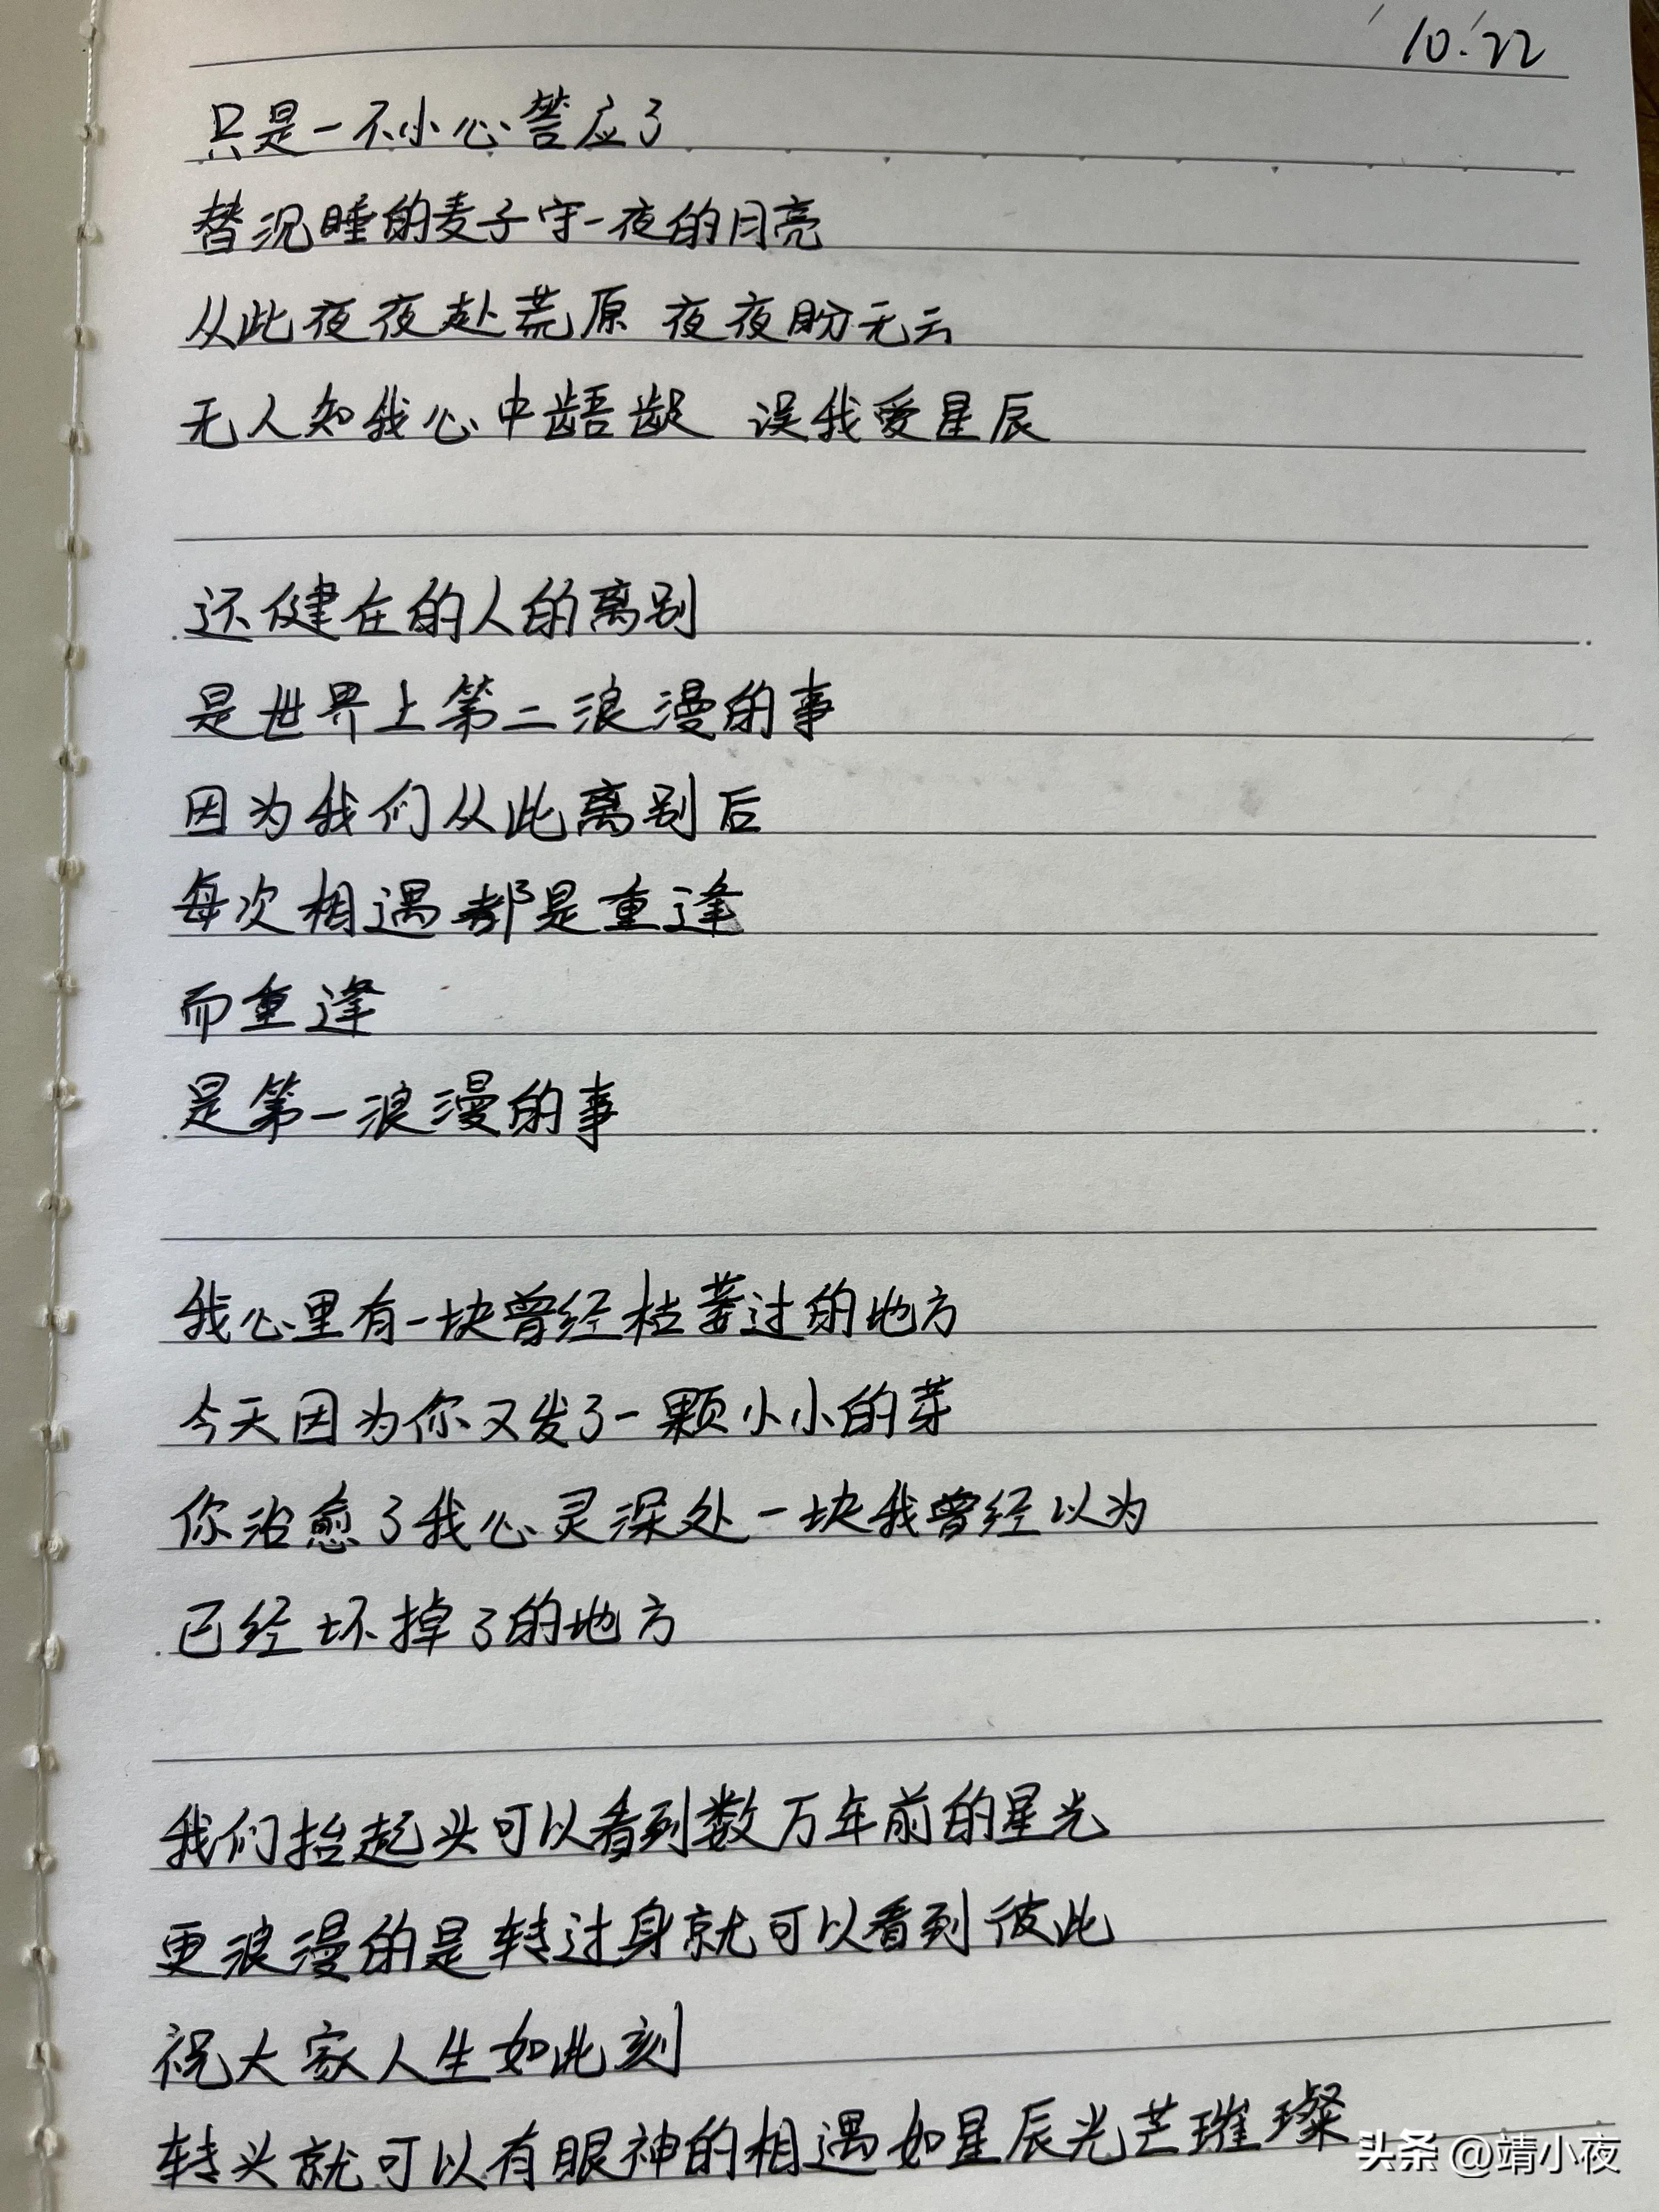 10.22
只是一不小心答应了
替沉睡的麦子守一夜的月亮
从此夜夜赴荒原 夜夜盼无云
无人知我心中龉龊 误我爱星辰
还健在的人的离别
是世界上第二浪漫的事
因为我们从此离别后
每次相遇都是重逢
而重逢
是第一浪漫的事
我心里有一块曾经枯萎过的地方
今天因为你又发了一颗小小的芽
你治愈了我心灵深处一块我曾经以为
已经坏掉了的地方
我们抬起头可以看到数万年前的星光
更浪漫的是转过身就可以看到彼此
祝大家人生如此刻
转头就可以有眼神的相遇如星辰光芒璀璨
头条 @靖小夜